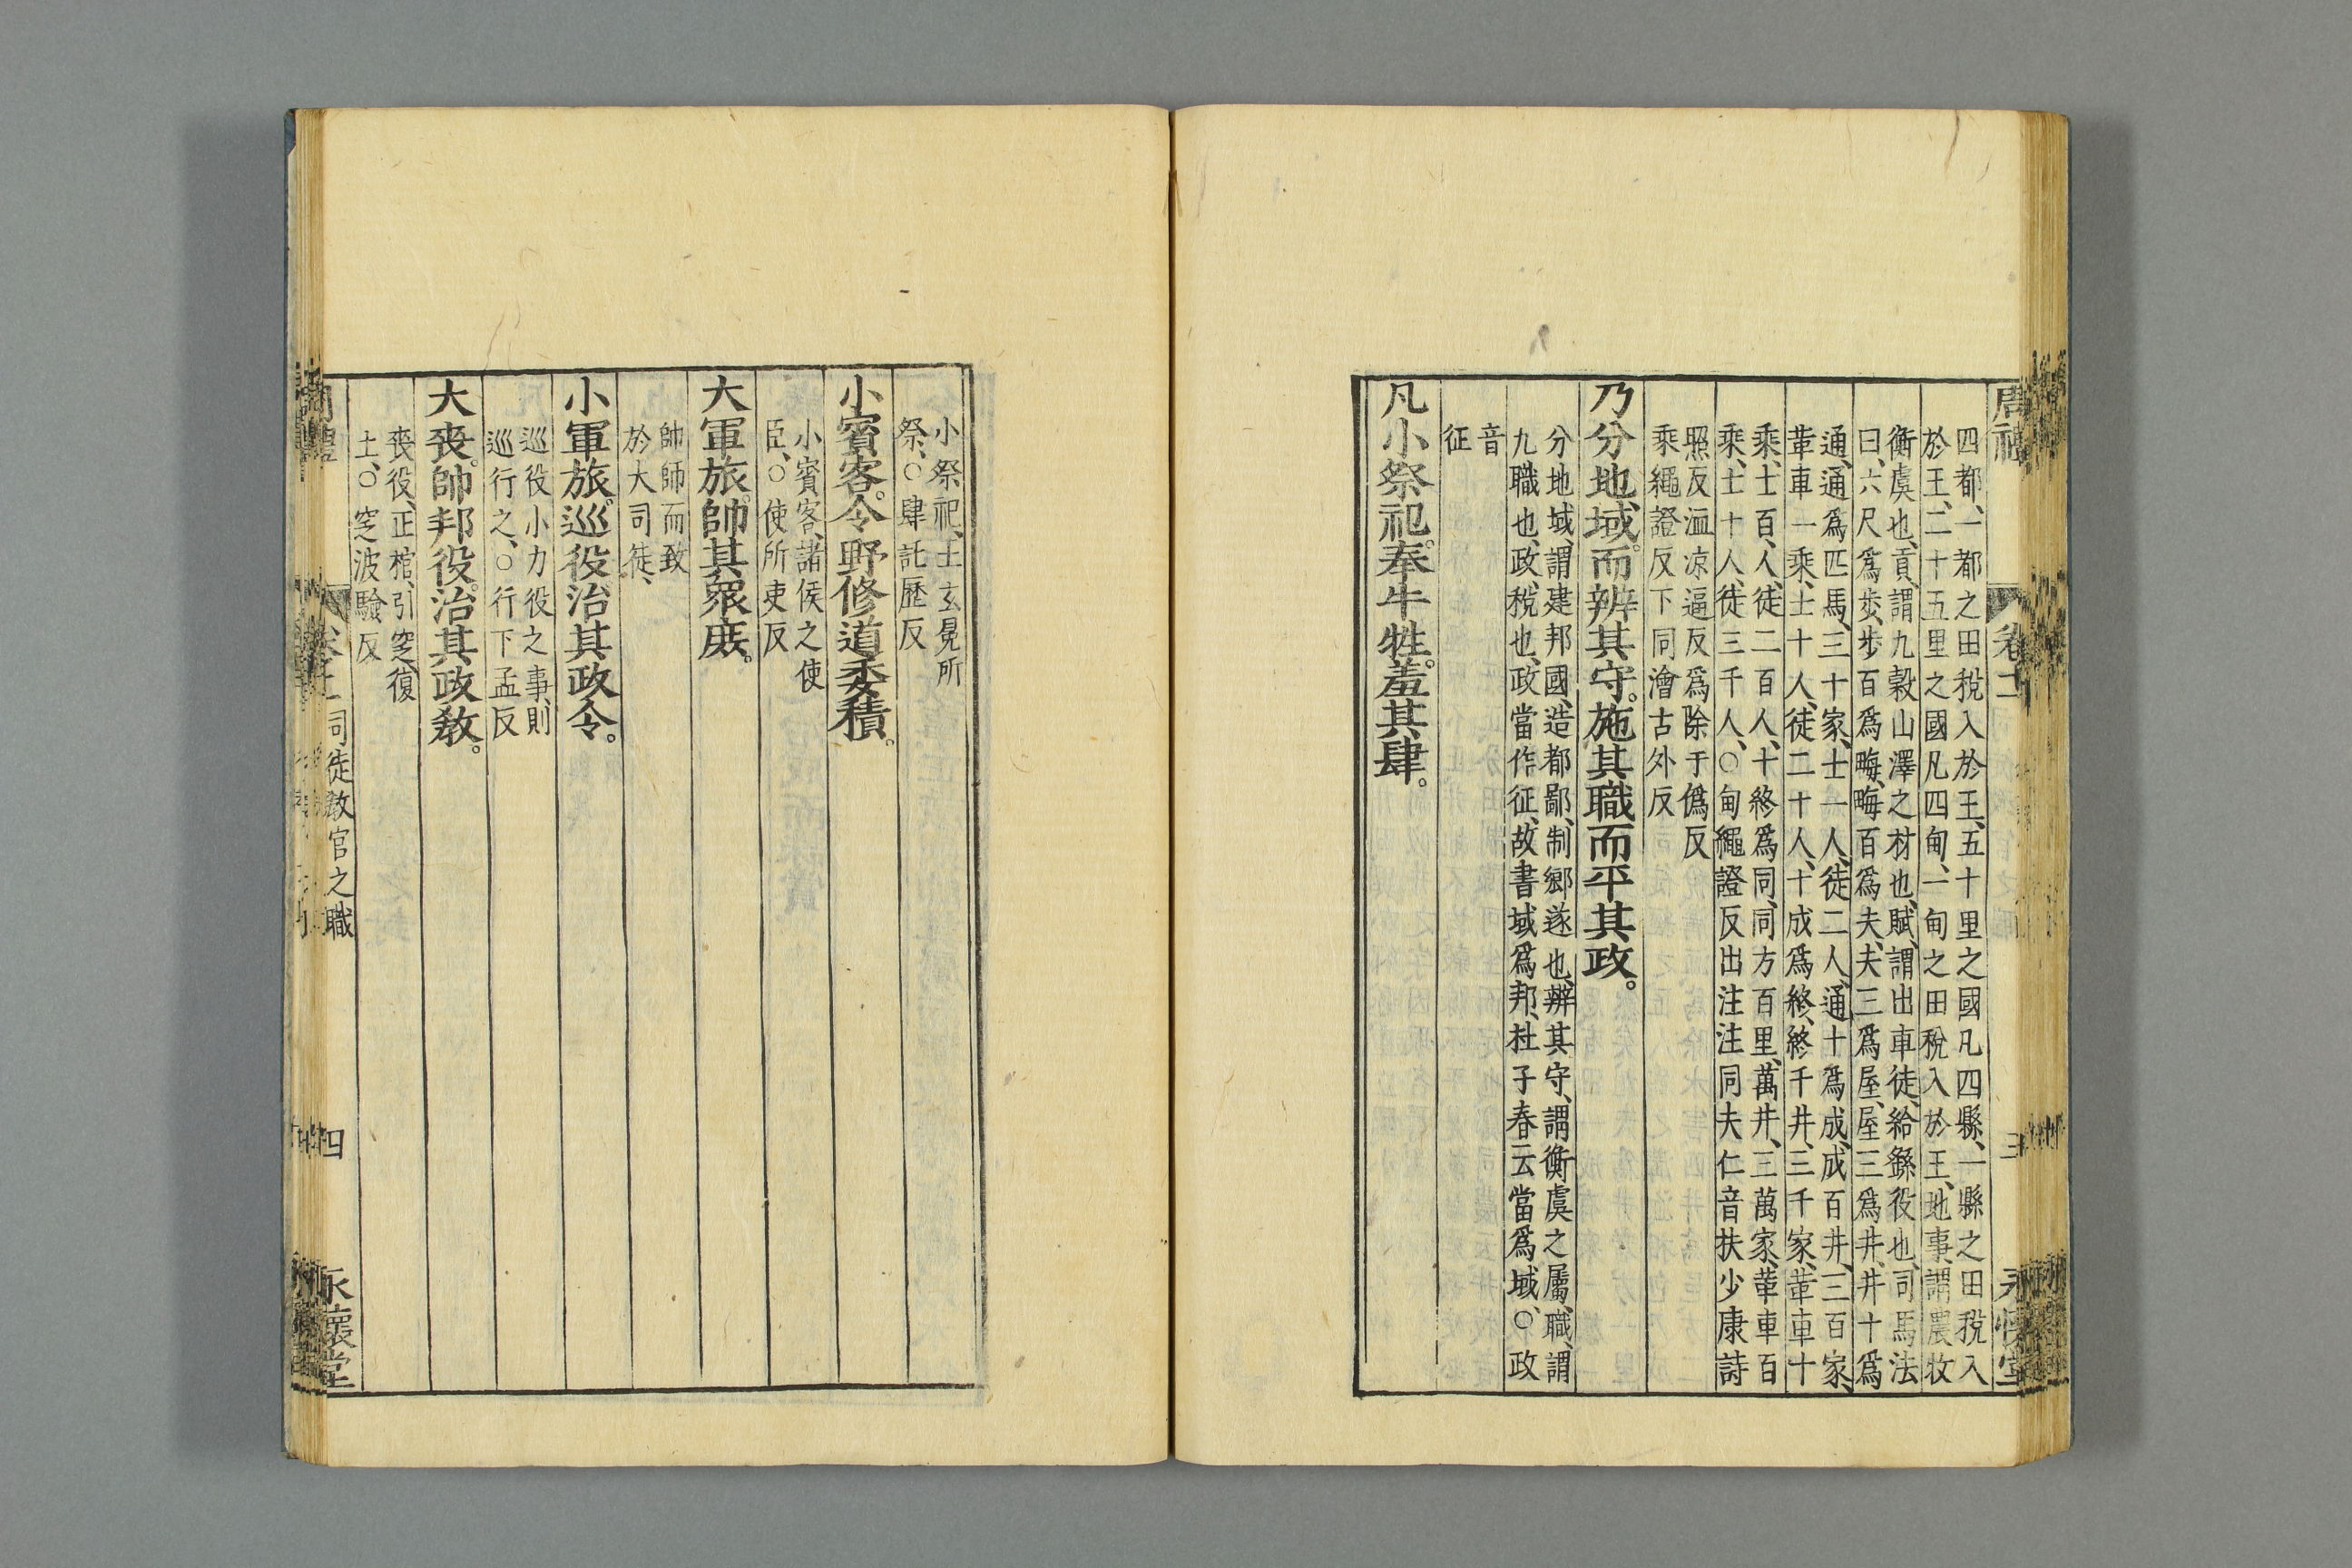 周禮 卷十一 三 永懷堂
四都、一都之田稅入於王、五十里之國凡四縣、一縣之田稅入
於王、二十五里之國凡四甸、一甸之田稅入於王、地事、謂農牧
衡虞也、貢、謂九穀山澤之材也、賦、謂出車徒、給繇役也、司馬法
曰、六尺爲步、步百爲畮、畮百爲夫、夫三爲屋、屋三爲井、井十爲
通、通爲匹馬、三十家、士一人、徒二人、通十爲成、成百井、三百家、
革車一乘、士十人、徒二十人、十成爲終、終千井、三千家、革車十
乘、士百人、徒二百人、十終爲同、同方百里、萬井、三萬家、革車百
乘、士十人、徒三千人、○甸繩證反出注注同夫仁音扶少康詩
照反洫凉逼反爲除于僞反
乘繩證反下同澮古外反
乃分地域。而辨其守。施其職而平其政。
分地域、謂建邦國、造都鄙、制鄉遂也、辨其守、謂衡虞之屬、職、謂
九職也、政、稅也、政、當作征、故書域爲邦、杜子春云當爲域、○政
音
征
凡小祭祀。奉牛牲。羞其肆。
小祭祀、王玄冕所
祭、○肆託歷反
小賓客。令野修道委積。
小賓客、諸侯之使
臣、○使所吏反
大軍旅。帥其衆庶。
帥帥而致
於大司徒、
小軍旅。巡役治其政令。
巡役小力役之事、則
巡行之、○行下孟反
大喪。帥邦役。治其政教。
喪役、正棺、引窆、復
土、○窆波驗反
司徒教官之職 四 永懷堂